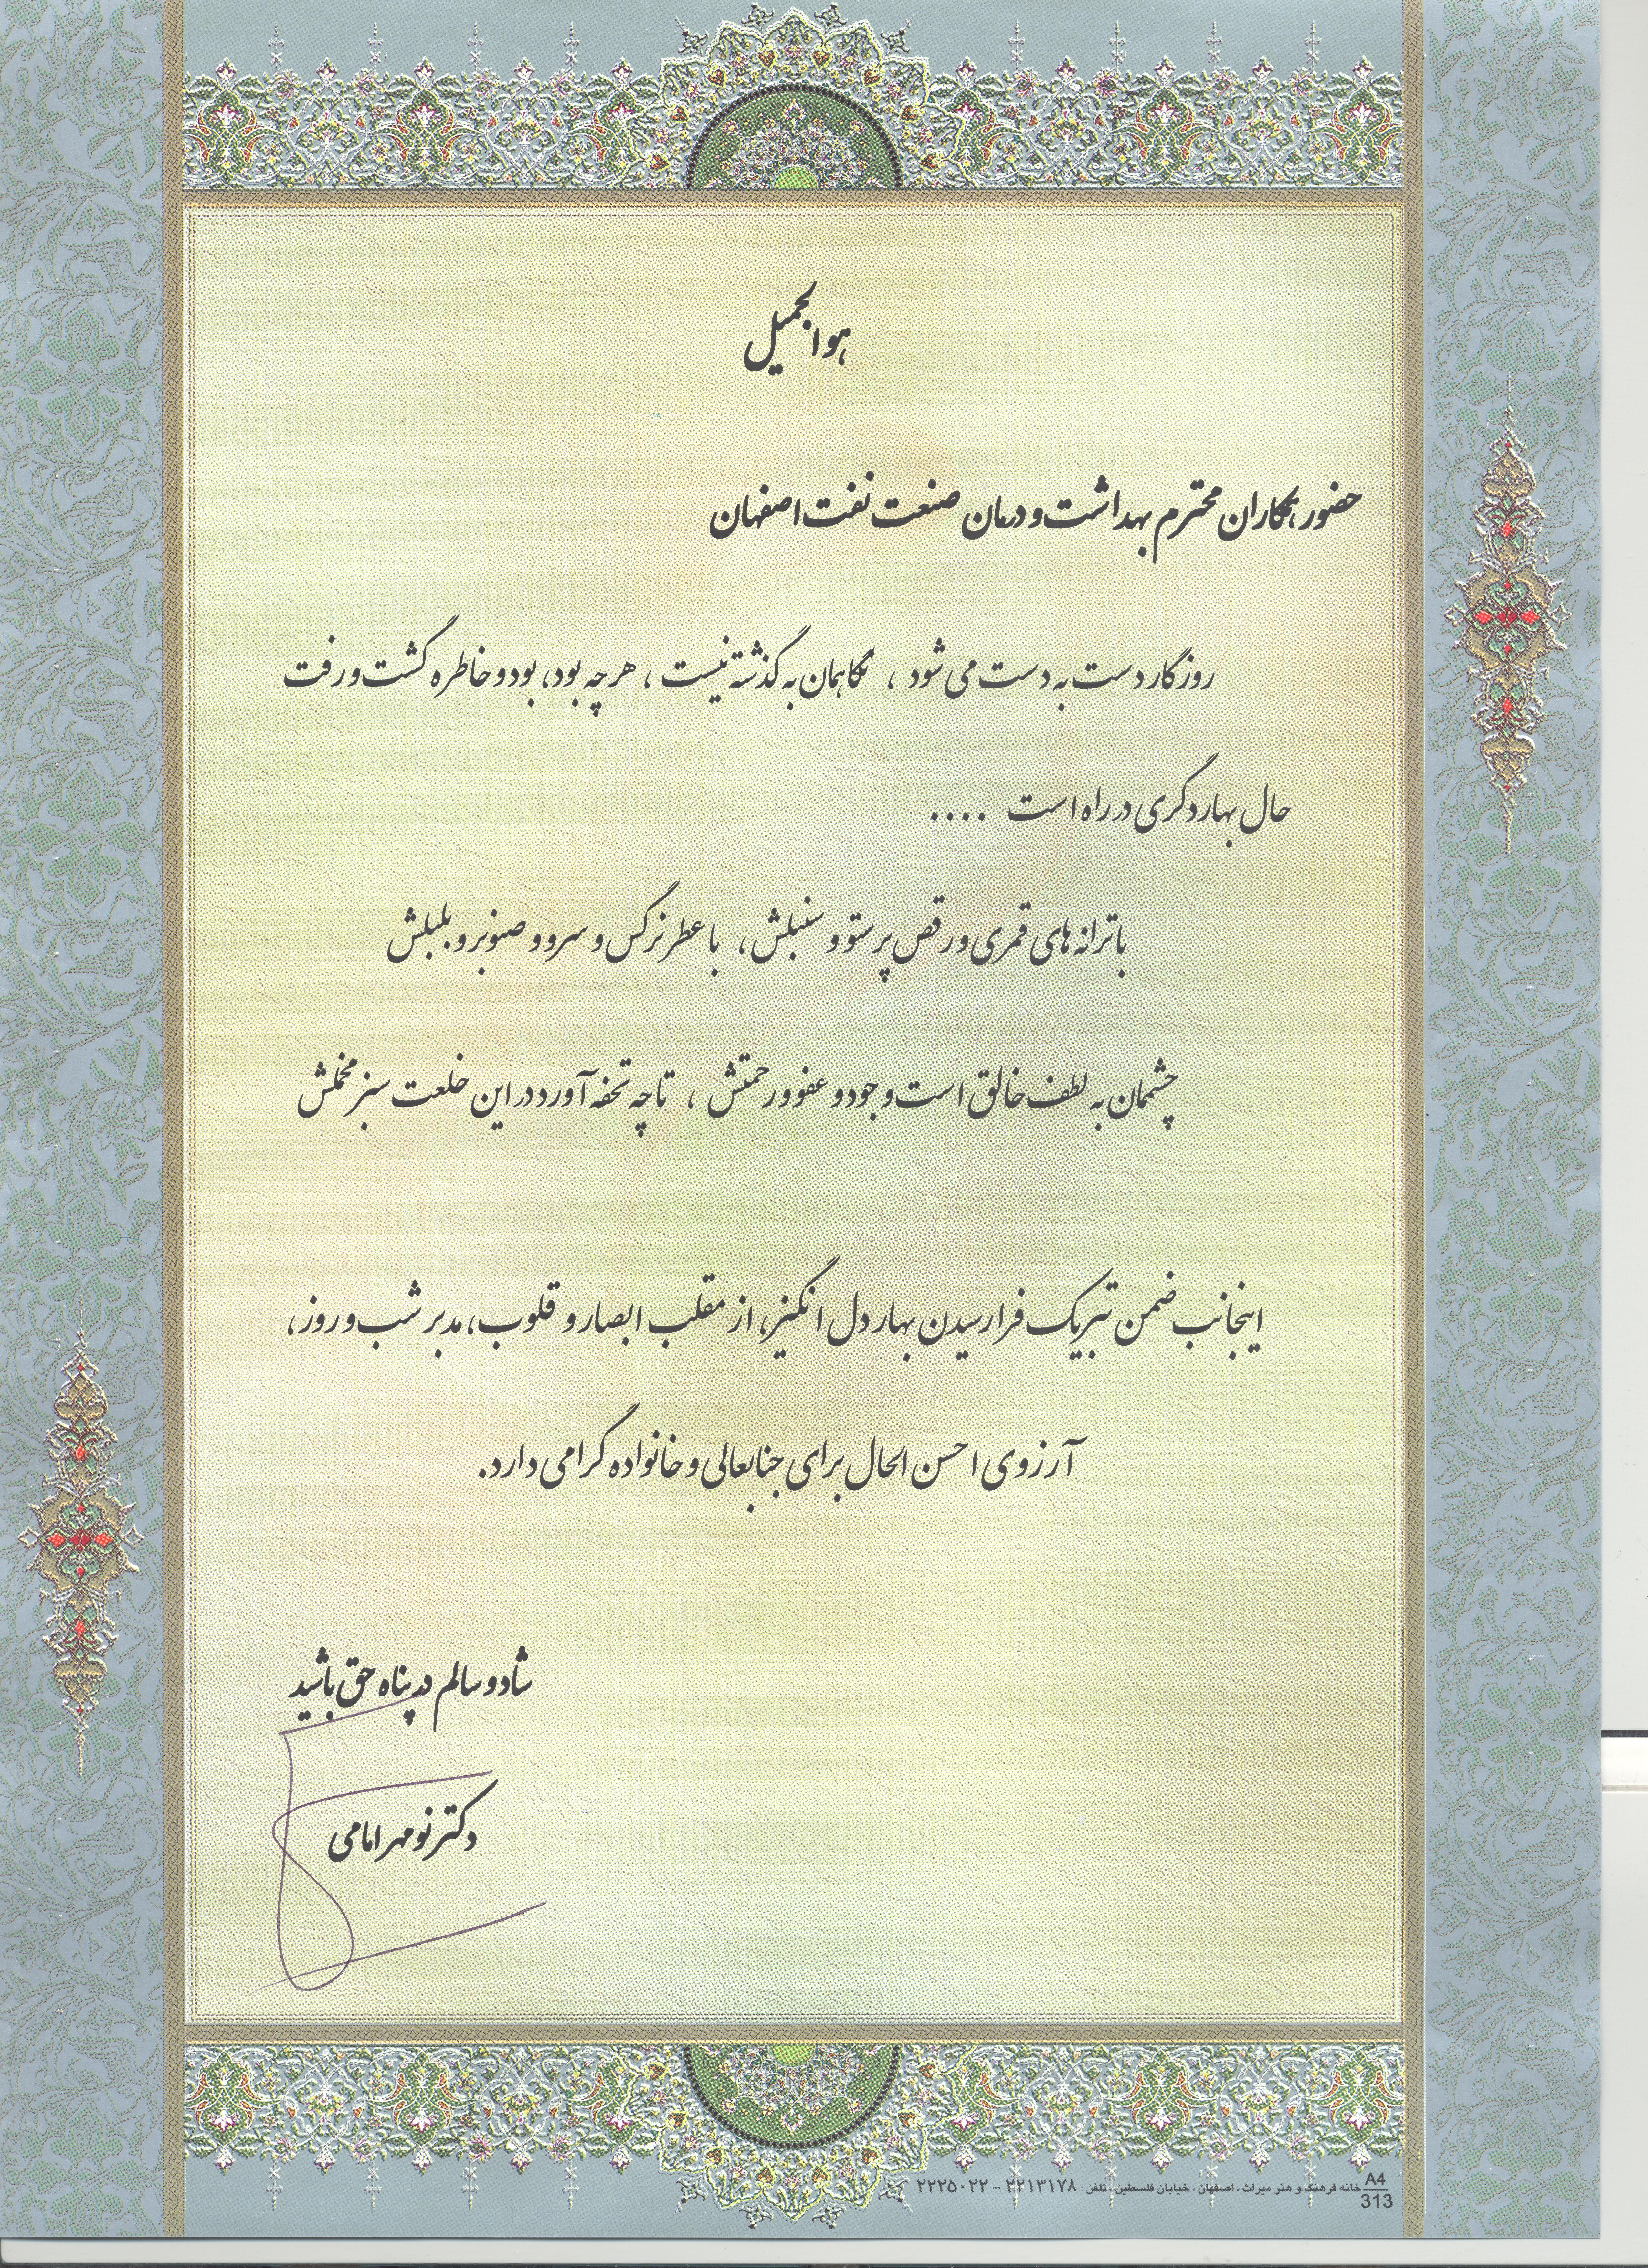 هوالجمیل
حضور همکاران محترم بهداشت و درمان صنعت نفت اصفهان
روزگار دست به دست می شود ، نگاهمان به گذشته نیست ، هر چه بود، بود و خاطره گشت و رفت
حال بهار دگری در راه است ....
با ترانه های قمری و رقص پرستو و سنبلش ، با عطر نرگس و سرو و صنوبر و بلبلش
چشممان به لطف خالق است و جود و عفو و رحمتش ، تا چه تحفه آورد در این خلعت سبز مخملش
اینجانب ضمن تبریک فرا رسیدن بهار دل انگیز، از مقلب ابصار و قلوب، مدبر شب و روز،
آرزوی احسن الحال برای جنابعالی و خانواده گرامی دارد.
شاد و سالم در پناه حق باشید
دکتر نومهر امامی
خانه فرهنگ و هنر میراث ، اصفهان ، خیابان فلسطین ، تلفن : ۲۲۱۳۱۷۸ - ۲۲۲۵۰۲۲
A4
313